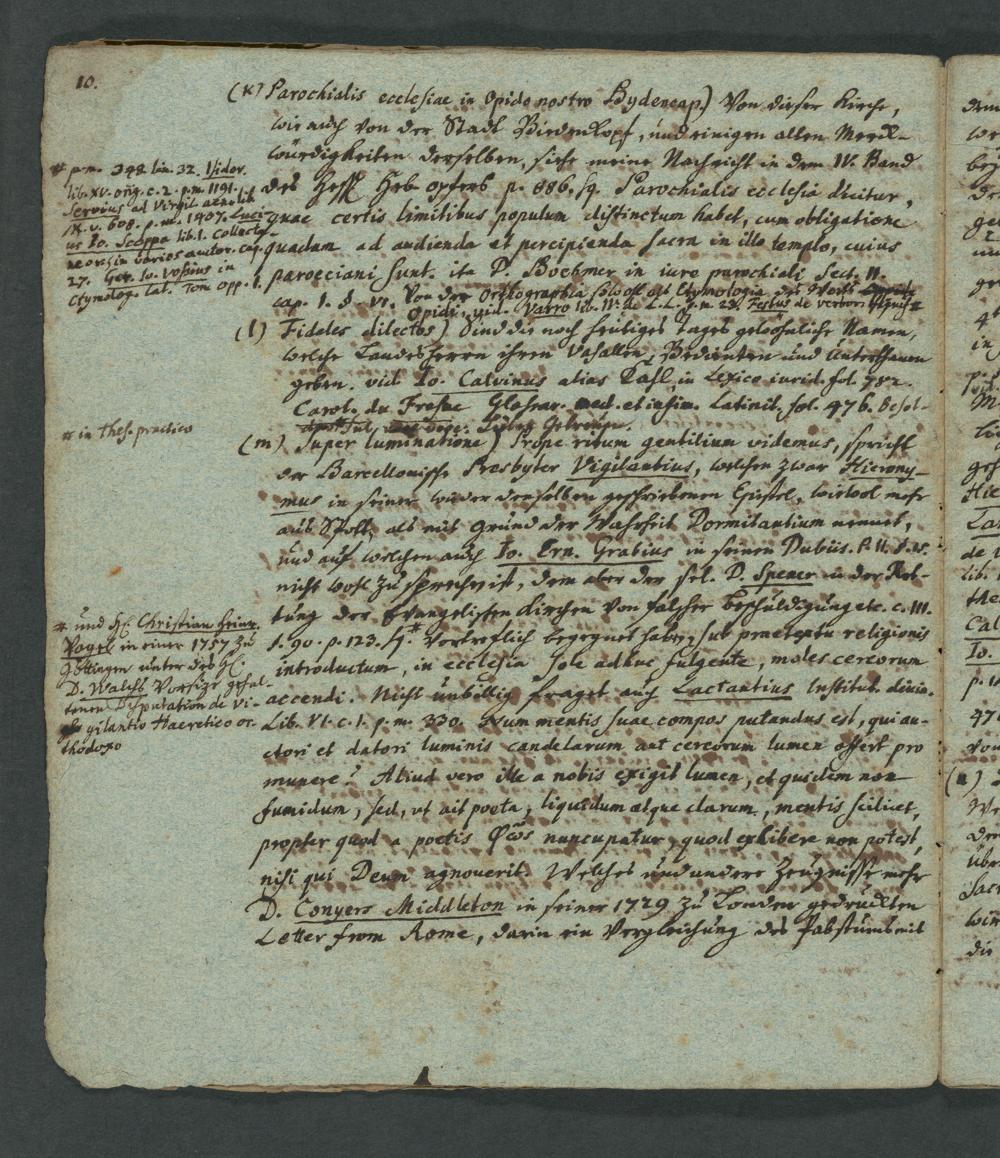 10.
(k) Parochialis ecclesiae in Opido nostro Bydencap.) Von dieser Kirche,
wie auch von der Stadt Biedenkopf, und einigen alten Merck-
würdigkeiten derselben, siehe meine Nachricht in dem IV. Band
des Hess. Heb-opfers p. 886. sq. Parochialis ecclesia dicitur,
quae certis limitibus populum distinctum habet, cum obligatione
quadam ad audienda et percipienda sacra in illo templo, cuius
paroeciani sunt. ita D. Boehmer in iure parochiali Sect. II.
cap. 1. §. VI. Von der Orthographia sowohl als Etymologia des Worts
Opidi, vid. Varro lib. IV. de L. L. p. m. 23. Festus de verbor. signif. *
* p. m. 398. lin. 32. Isidor.
lib. XV. orig. c. 2. p. m. 1191.
Servius ad Virgil aeneid. lib.
IX. v. 608. p. m. 1407. Luci-
us Io. Scoppa lib. 1. Collecta-
neor. in varios autor. cap.
27. Ger. Io. Vossius in
Etymolog. Lat. Tom opp. 1.
(l) Fideles dilectos) Sind die noch heutiges Tages gewöhnliche Namen,
welche Landesherren ihren Vasallen, Bedienten und Unterthanen
geben. vid. Io. Calvinus alias Kahl in Lexico iurid. fol. 782.
Carol. du Fresne Glossar. med. et infim. Latinit. fol. 476. Besol-
* in thes. practico
(m) Super luminatione) Prope ritum gentilium videmus, spricht
der Barcellonische Presbyter Vigilantius, welchen zwar Hierony-
mus in seiner wieder denselben geschriebenen Epistel, wiewol mehr
aus Spott, als mit Grund der Wahrheit Dormitantium nennet,
und auf welchen auch Io. Ern. Grabius in seinen Dubiis. P. II. §. 15.
nicht wohl zu sprechen ist, dem aber der sel. D. Spener in der Ret-
tung der Evangelischen Kirchen von falscher Beschuldigung etc. c. III.
§. 90. p. 123. sq * vortreflich begegnet haben, sub praetextu religionis
introductum, in ecclesia sole adhuc fulgente, moles cereorum
accendi. Nicht unbillig fraget auch Lactantius Institut. divin.
Lib. VI. c. 1. p. m. 330. Num mentis suae compos putandus est, qui au-
ctori et datori luminis candelarum aut cereorum lumen offert pro
munere? Aliud vero ille a nobis exigit lumen, et quidem non
fumidum, sed, ut ait poeta, liquidum atque clarum, mentis scilicet,
propter quod a poetis φῶς nuncupatur, quod exhibere non potest,
nisi qui Deum agnoverit. Welches und andere Zeugnisse mehr
D. Conyers Middleton in seiner 1729 zu London gedruckten
Letter from Rome, darin ein Vergleichung des Pabstums mit
* und H. Christian Heinr.
Vogel in einer 1757 zu
Göttingen unter des H.
D. Walchs Vorsize gehal-
tenen Disputation de Vi-
gilantio Haeretico or-
thodoxo